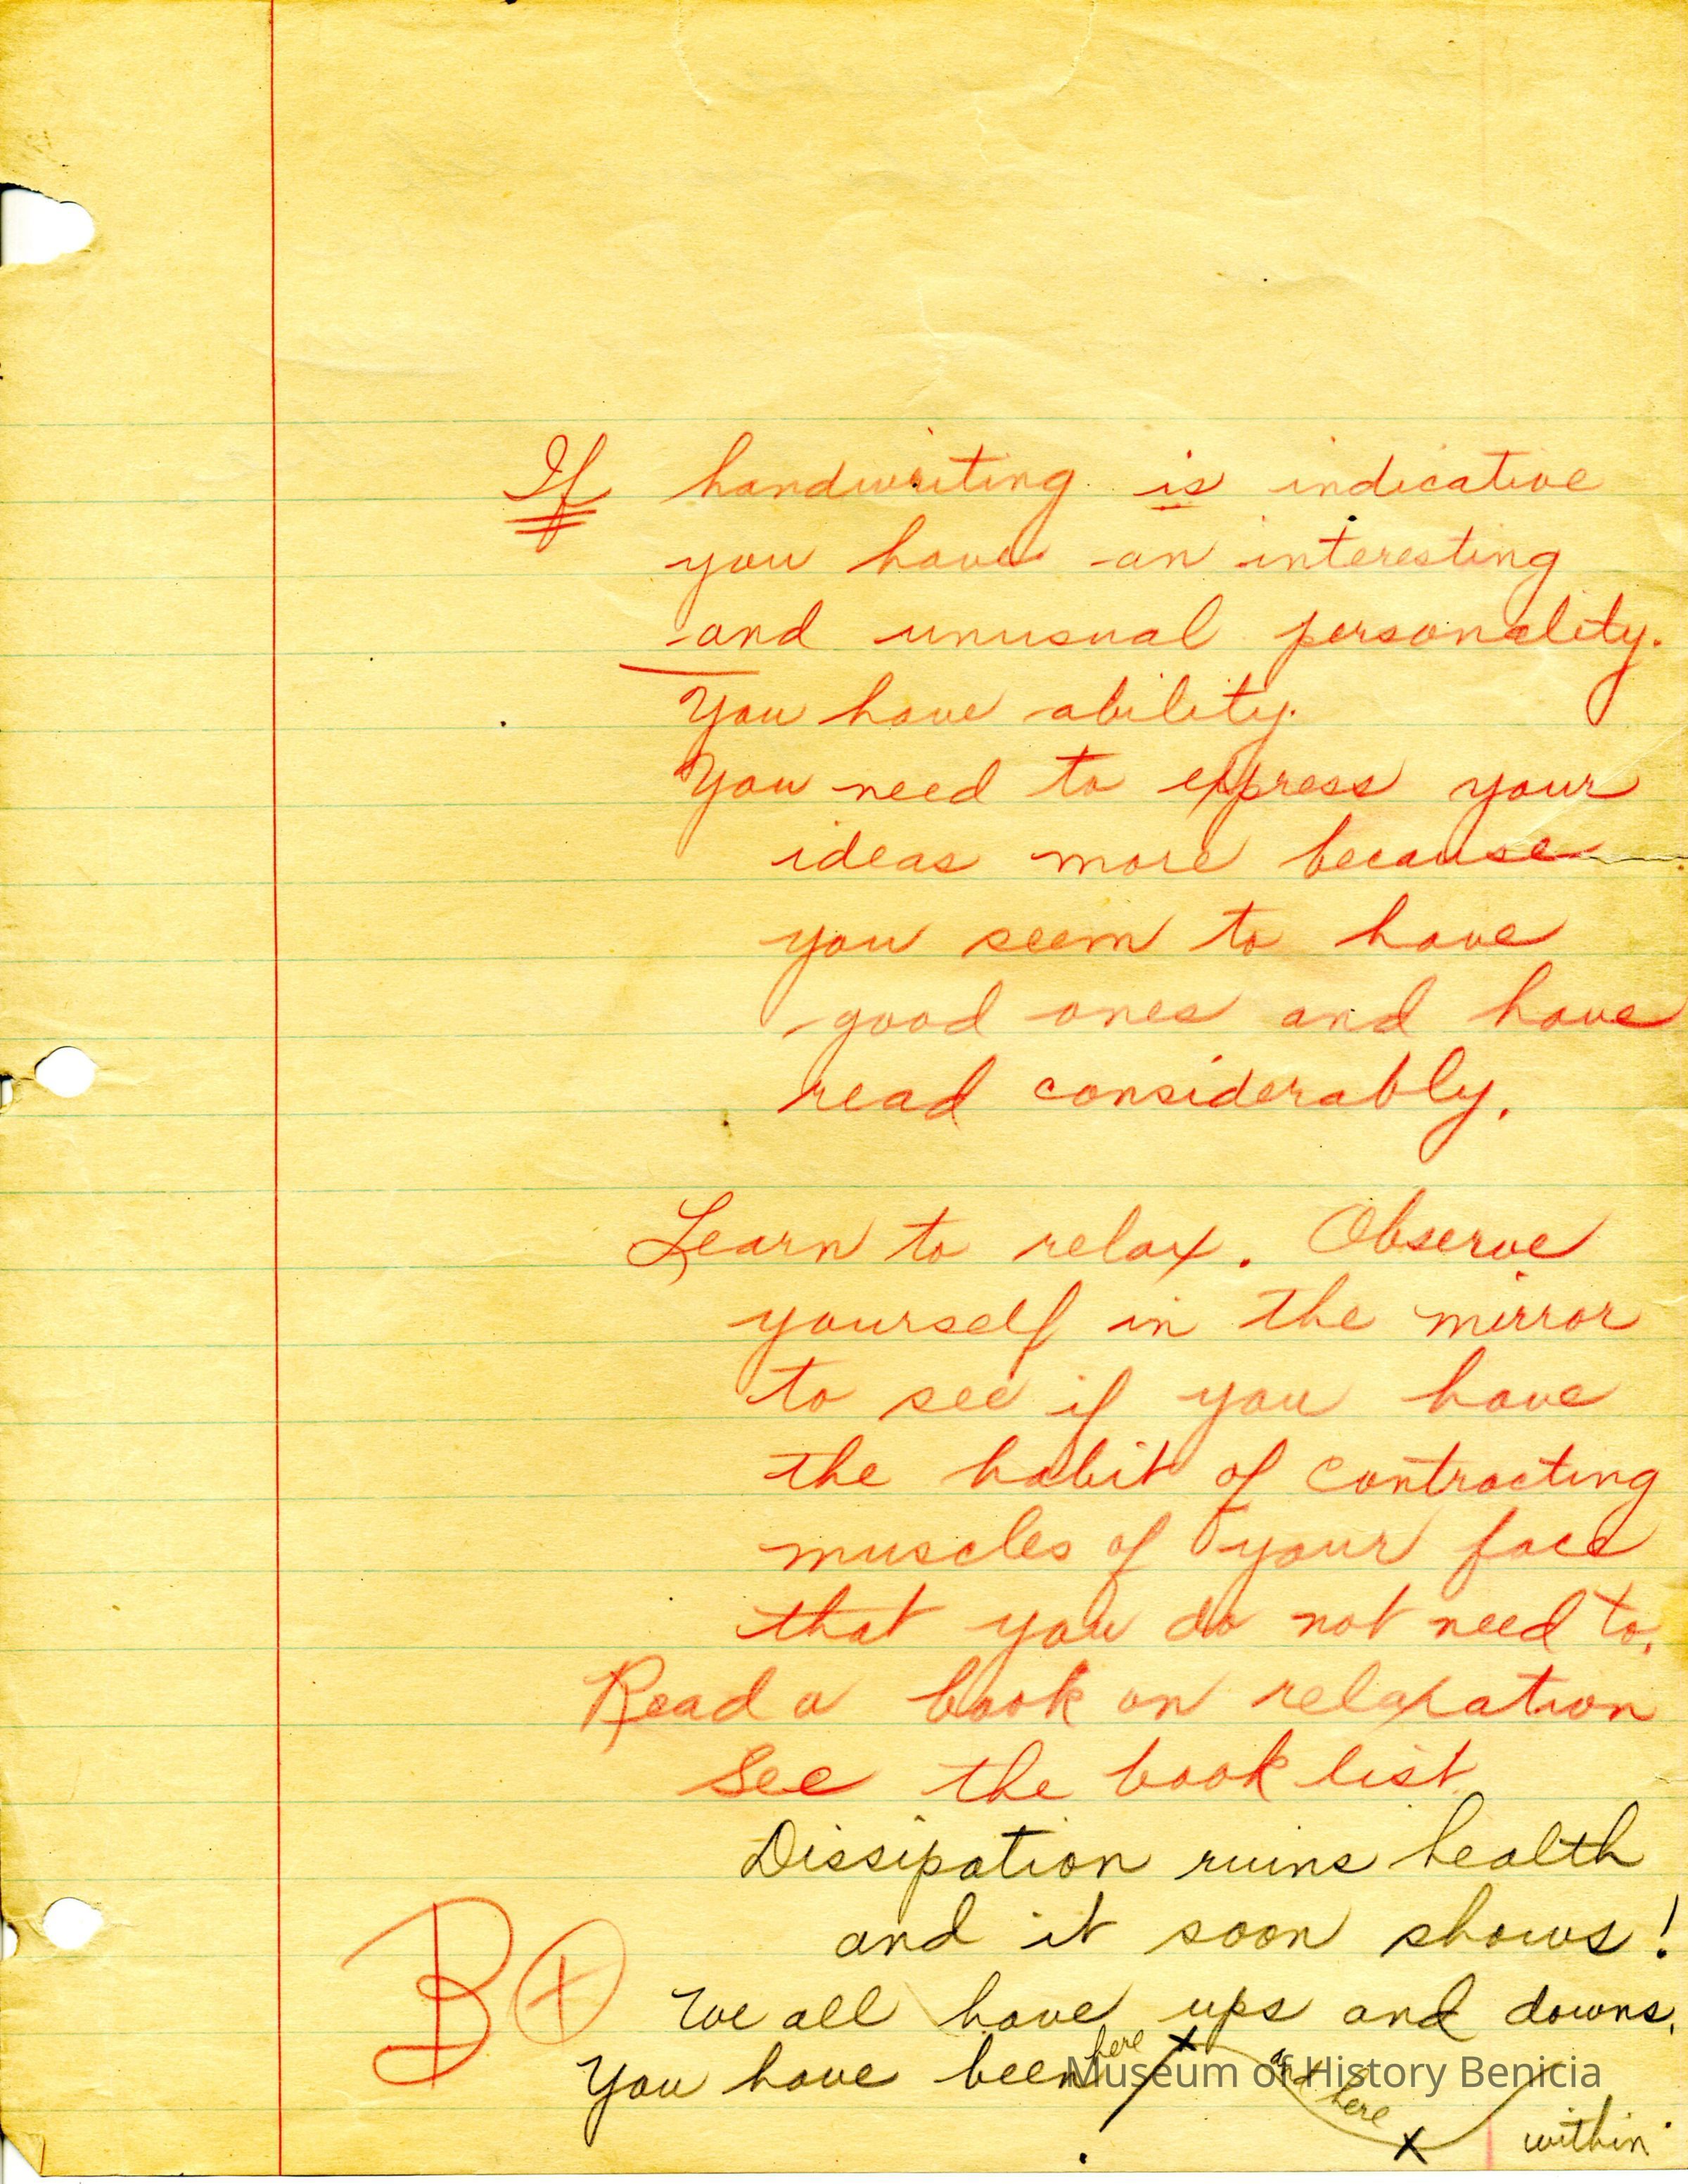 If handwriting is indicative
you have an interesting
and unusual personality.
You have ability.
You need to express your
ideas more because
you seem to have
good ones and have
read considerably.
Learn to relax. Observe
yourself in the mirror
to see if you have
the habit of contracting
muscles of your face
that you do not need to.
Read a book on relaxation
See the book list
Dissipation ruins health
and it soon shows!
B+
We all have ups and downs.
You have been here x and here x
within
Museum of History Benicia